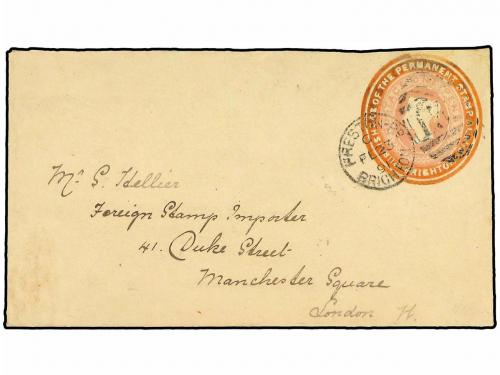 OF THE PERMANENT STAMP
BRIGHTO
PRES
BRIGHTO
Mr. S. Hellier
Foreign Stamp Importer
41. Duke Street
Manchester Square
London W.